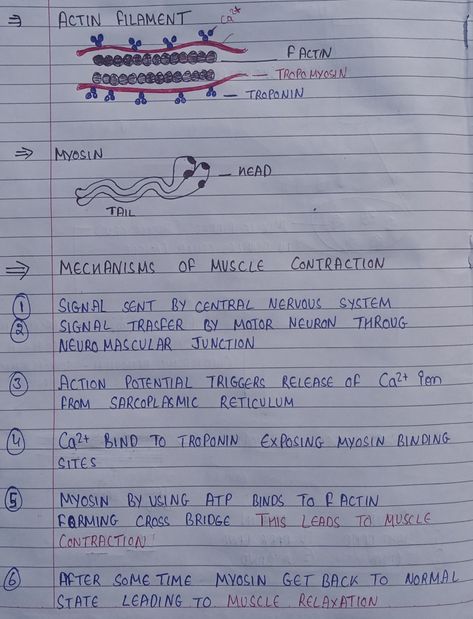 ⇒ ACTIN FILAMENT
Ca²⁺
F ACTIN
TROPOMYOSIN
TROPONIN
⇒ MYOSIN
HEAD
TAIL
⇒ MECHANISMS OF MUSCLE CONTRACTION
① SIGNAL SENT BY CENTRAL NERVOUS SYSTEM
② SIGNAL TRASFER BY MOTOR NEURON THROUG
NEURO MASCULAR JUNCTION
③ ACTION POTENTIAL TRIGGERS RELEASE OF Ca²⁺ ion
FROM SARCOPLASMIC RETICULUM
④ Ca²⁺ BIND TO TROPONIN EXPOSING MYOSIN BINDING
SITES
⑤ MYOSIN BY USING ATP BINDS TO F ACTIN
FORMING CROSS BRIDGE THIS LEADS TO MUSCLE
CONTRACTION
⑥ AFTER SOME TIME MYOSIN GET BACK TO NORMAL
STATE LEADING TO MUSCLE RELAXATION